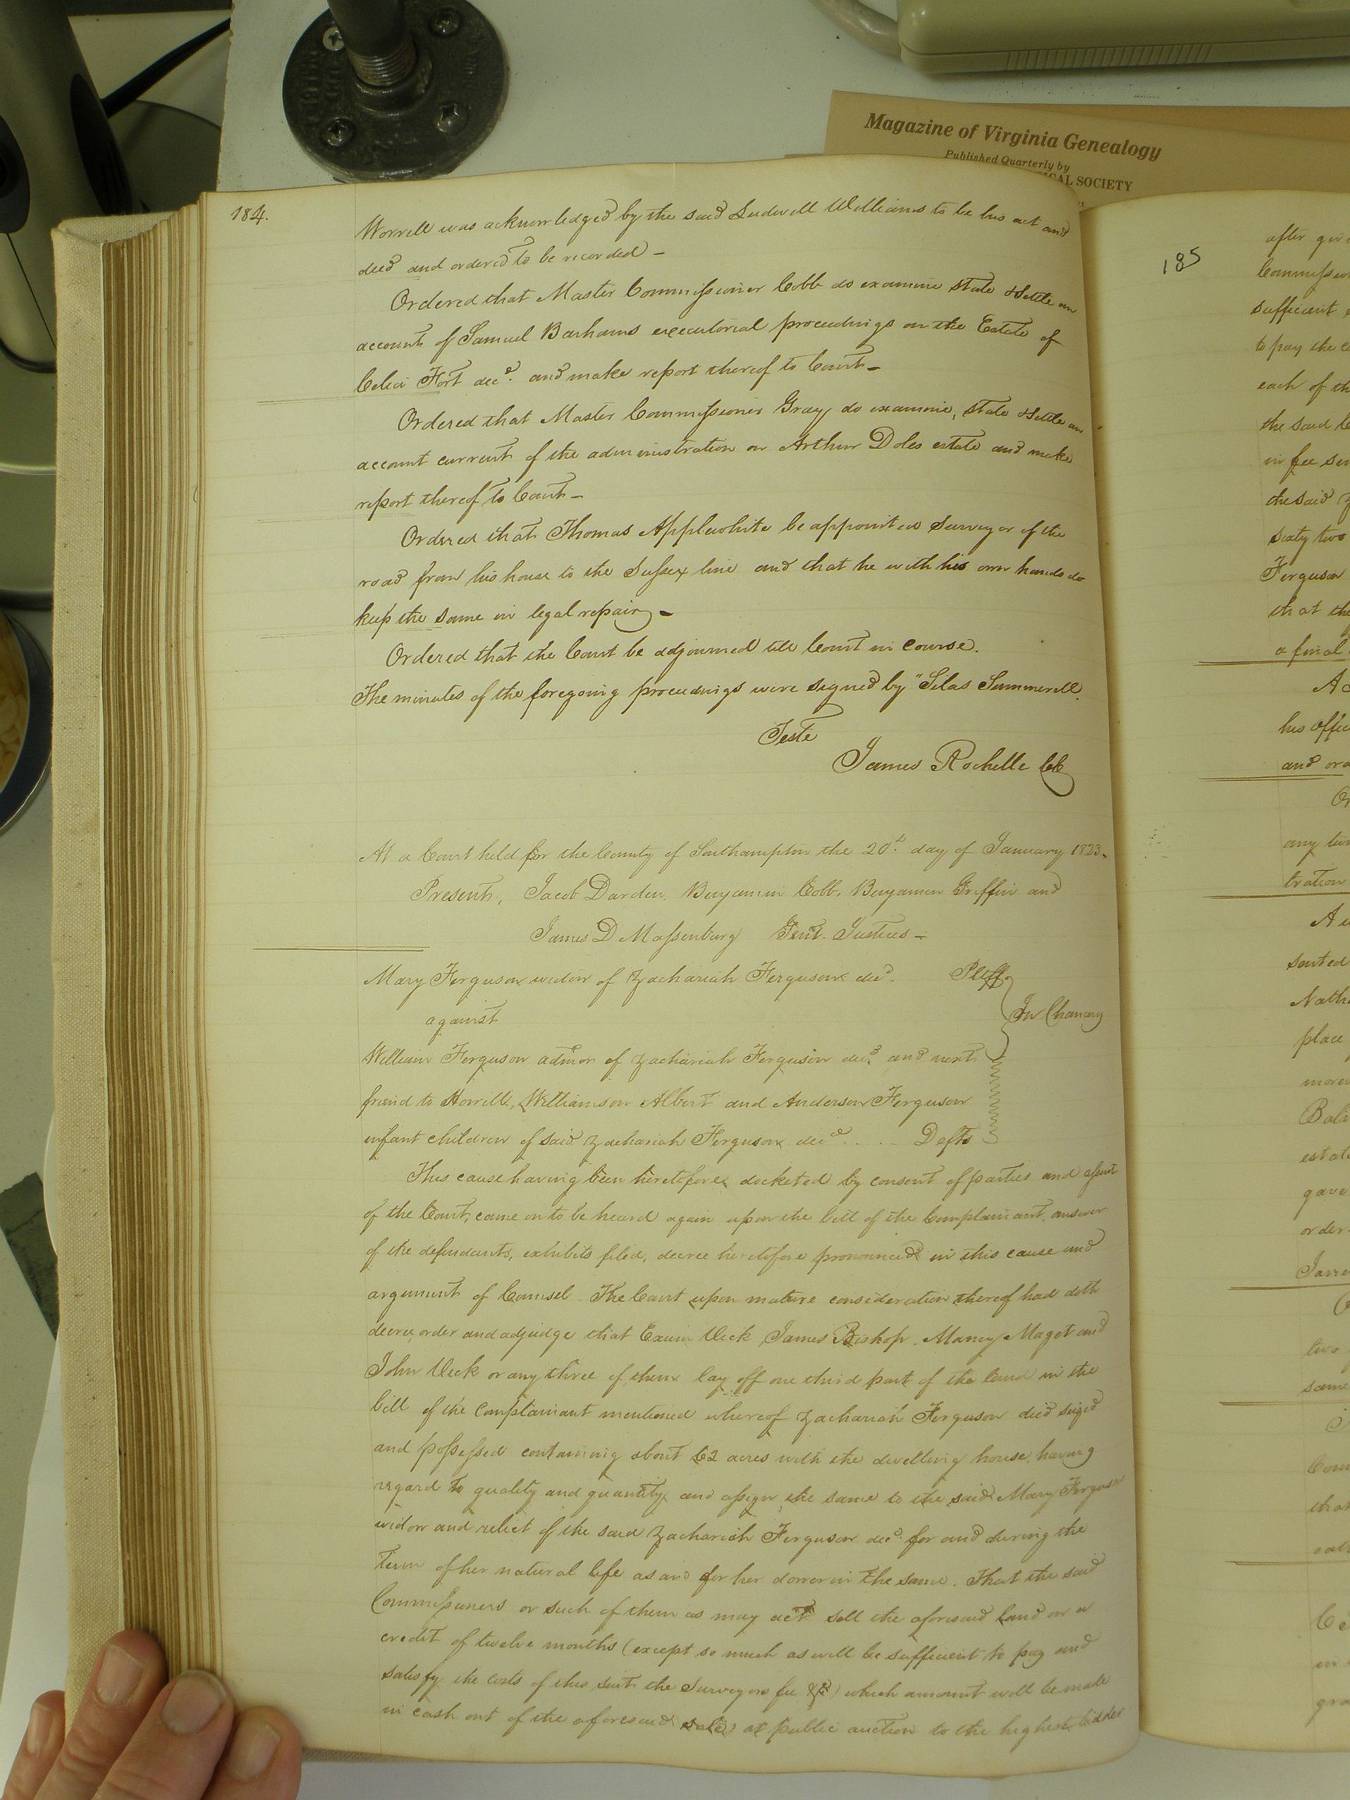 Magazine of Virginia Genealogy
Published Quarterly by
CAL SOCIETY
184.
Worrell was acknowledged by the said Ludwell Williams to be his act and
deed and ordered to be recorded –
Ordered that Master Commissioner Cobb do examine state & settle an
account of Samuel Barhams executorial proceedings on the Estate of
Celia Fort decd. and make report thereof to Court –
Ordered that Master Commissioner Gray do examine, state & settle an
account current of the administration on Arthur Doles estate and make
report thereof to Court –
Ordered that Thomas Applewhite be appointed Surveyor of the
road from his house to the Sussex line and that he with his own hands do
keep the same in legal repair –
Ordered that the Court be adjourned till Court in course.
The minutes of the foregoing proceedings were signed by "Silas Summerell.
Teste
James Rochelle Clk
At a Court held for the County of Southampton the 20th. day of January 1823 –
Present, Jacob Darden, Benjamin Cobb, Benjamin Griffin and
James D Massenburg Gent. Justices –
Mary Ferguson widow of Zachariah Ferguson decd. Pltff
against
In Chancery
William Ferguson admor of Zachariah Ferguson decd. and next
friend to Williamson Albert and Anderson Ferguson
infant children of said Zachariah Ferguson decd .... Defts
This cause having been heretofore docketed by consent of parties and assent
of the Court, came on to be heard again upon the bill of the Complainant, answer
of the defendants, exhibits filed, decree heretofore pronounced in this cause and
argument of Counsel. The Court upon mature consideration thereof had doth
decree order and adjudge that Vick James Bishop, Maget and
John Vick or any three of them lay off one third part of the land in the
bill of the complainant mentioned whereof Zachariah Ferguson died seized
and possessed containing about 62 acres with the dwelling house, having
regard to quality and quantity and assign the same to the said Mary Ferguson
widow and relict of the said Zachariah Ferguson decd. for and during the
term of her natural life as and for her dower in the same. That the said
Commissioners or such of them as may act sell the aforesaid land on a
credit of twelve months (except so much as will be sufficient to pay and
satisfy the costs of this suit the Surveyors fee &c) which amount will be made
in cash out of the aforesaid sale) at public auction to the highest bidder
185
after
Commission
sufficient
to pay the
each of th
the said
in fee
the said
sixty two
Ferguson
that the
a final
his offic
and or
any
tration
sented
Nath
place
estat
gave
order
two
same
that